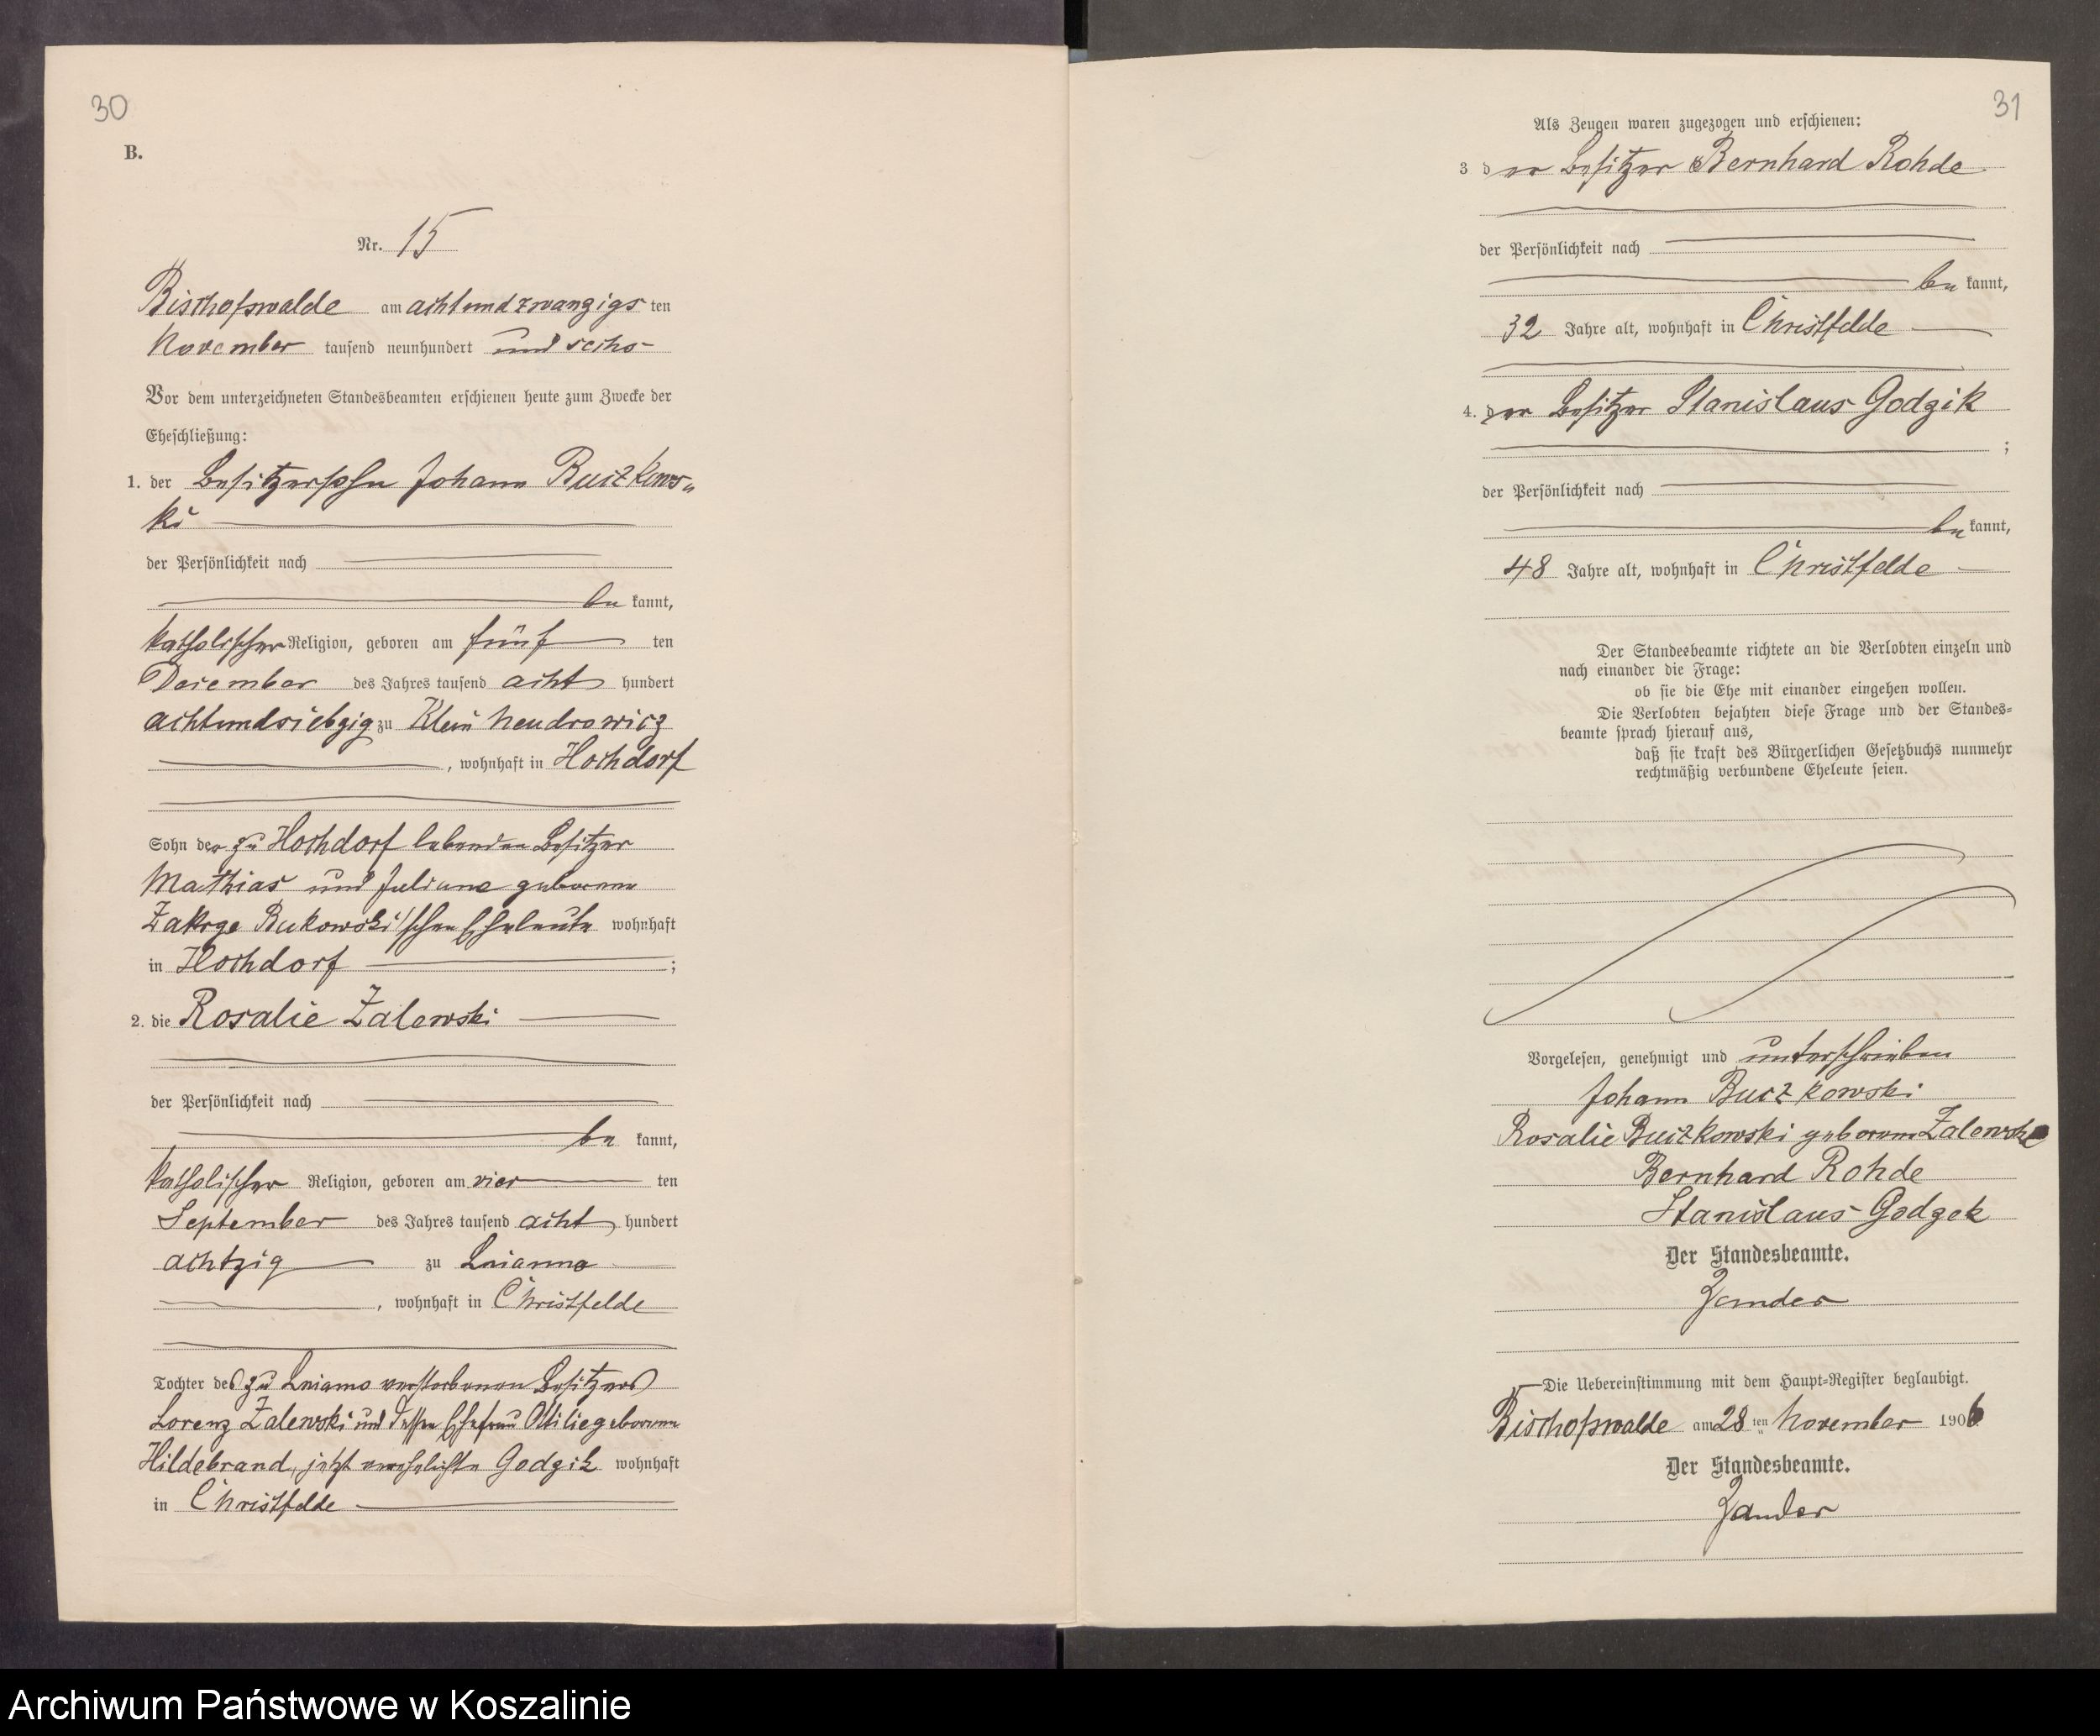 30
B.
Nr. 15
Bischofswalde am achtundzwanzigsten
November tausend neunhundert und sechs
Vor dem unterzeichneten Standesbeamten erschienen heute zum Zwecke der
Eheschließung:
1. der Besitzersohn Johann Buczkows-
ki
der Persönlichkeit nach
be kannt,
katholischer Religion, geboren am fünf ten
Dezember des Jahres tausend acht hundert
achtundsiebzig zu Klein
, wohnhaft in Hochdorf
Sohn der zu Hochdorf lebenden Besitzer
Mathias und Juliane geborene
Bukowski'schen Eheleute wohnhaft
in Hochdorf ;
2. die Rosalie Zalewski
der Persönlichkeit nach
be kannt,
katholischer Religion, geboren am vier ten
September des Jahres tausend acht hundert
achtzig zu Lnianno
, wohnhaft in Christfelde
Tochter des zu Lniano verstorbenen Besitzers
Lorenz Zalewski und dessen Ehefrau Ottilie geborene
Hildebrand, jetzt verehelichte Godzik wohnhaft
in Christfelde
31
Als Zeugen waren zugezogen und erschienen:
3 der Besitzer Bernhard Rohde
der Persönlichkeit nach
be kannt,
32 Jahre alt, wohnhaft in Christfelde
4. der Besitzer Stanislaus Godzik
;
der Persönlichkeit nach
be kannt,
48 Jahre alt, wohnhaft in Christfelde
Der Standesbeamte richtete an die Verlobten einzeln und
nach einander die Frage:
ob sie die Ehe mit einander eingehen wollen.
Die Verlobten bejahten diese Frage und der Standes-
beamte sprach hierauf aus,
daß sie kraft des Bürgerlichen Gesetzbuchs nunmehr
rechtmäßig verbundene Eheleute seien.
Vorgelesen, genehmigt und unterschrieben
Johann Buczkowski
Rosalie Buczkowski geborene Zalewski
Bernhard Rohde
Stanislaus Godzek
Der Standesbeamte.
Zander
Die Uebereinstimmung mit dem Haupt-Register beglaubigt.
Bischofswalde am 28 ten November 1906
Der Standesbeamte.
Zander
Archiwum Państwowe w Koszalinie